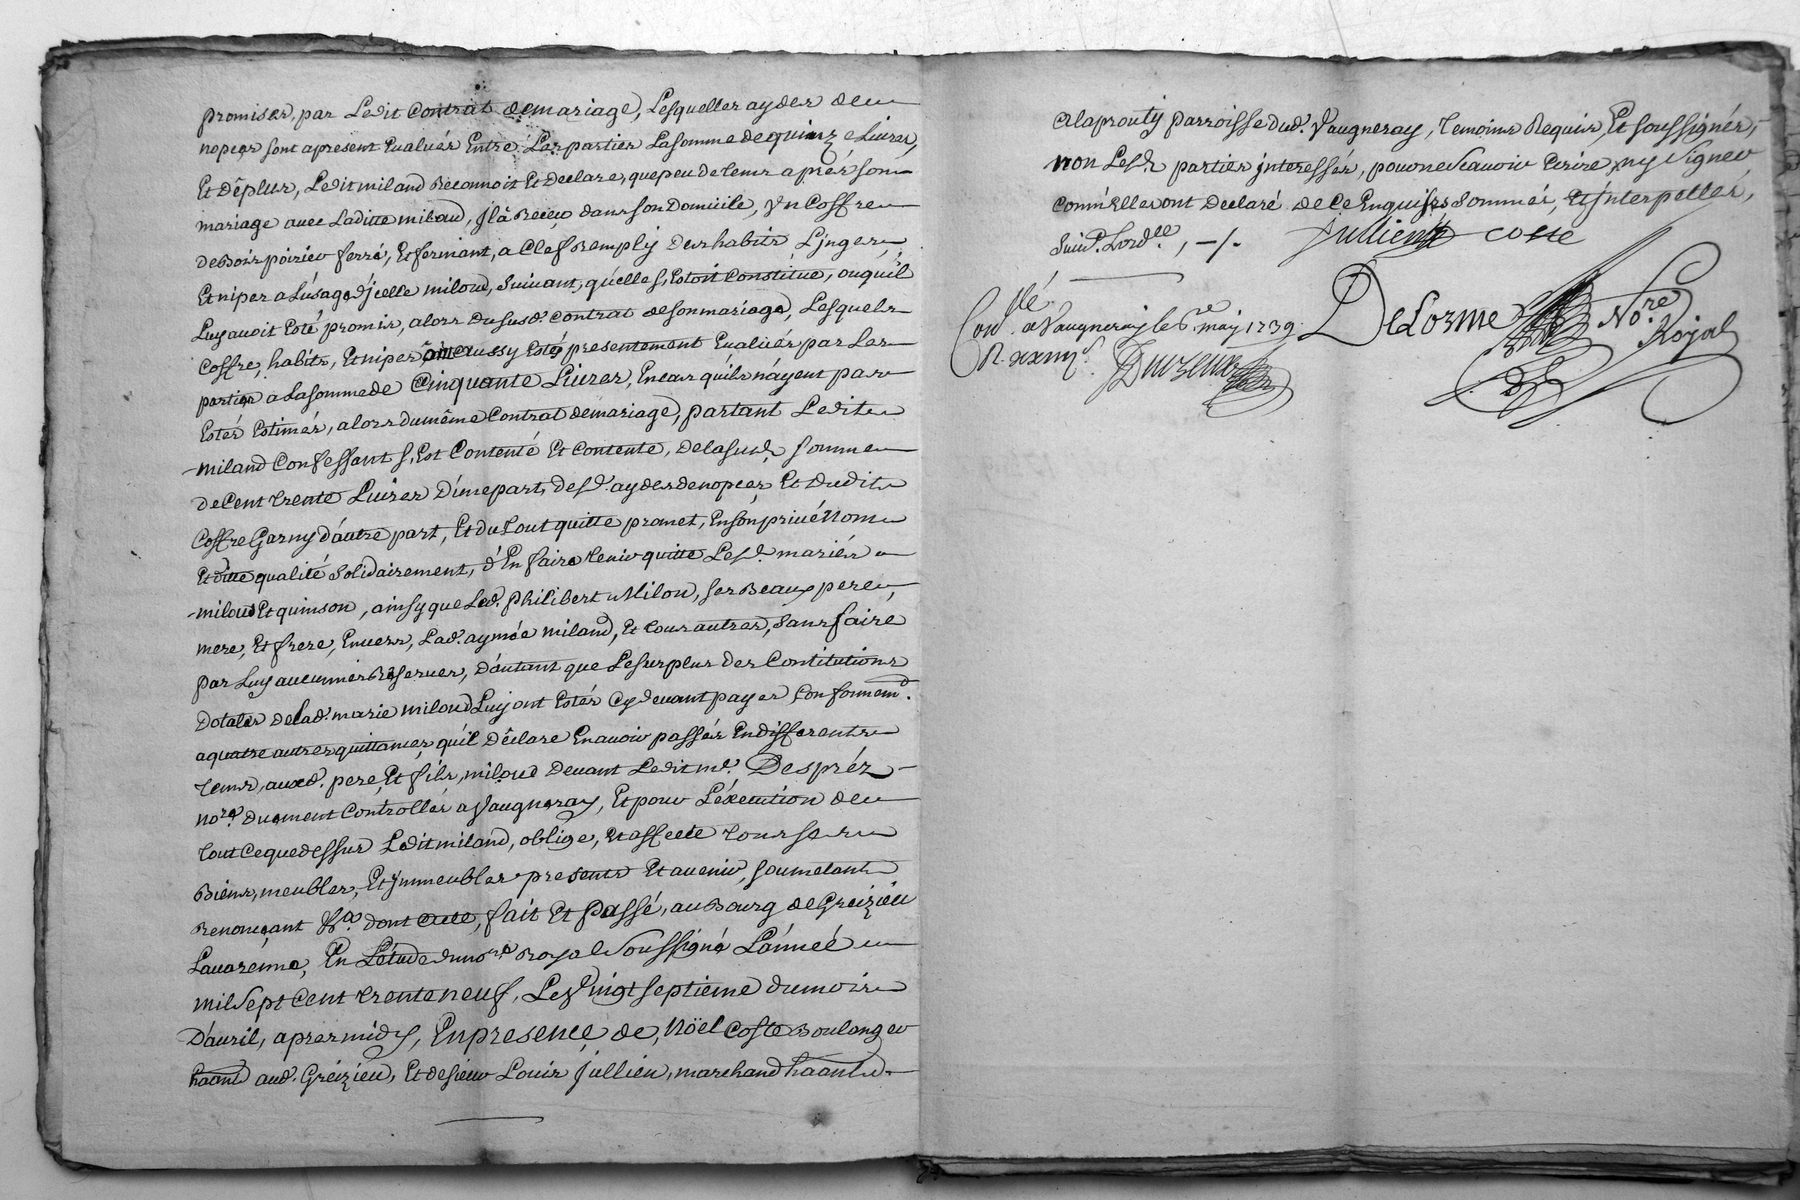 promises, par Ledit Contrat demariage, Lesquelles aydes de
nopces sont apresent Evalués Entre Les parties Lasomme dequinze Livres,
Et dêplus, Ledit miland Reconnoit Et Declare, quepeu detems aprés son
mariage avec Laditte miloud, Jl à Reçeu dans son Domicile, Vn Coffre
de Bois poirier ferré, Et fermant, a Clef Remply des habits Linges,
Et nipes a Lúsage d'jcelle miloud, Suivant, qúelle s'Estoit Constitüe, ou qúil
Luy avoit Esté promis, alors du susd. Contrat deson mariage, Lesquels
Coffre, habits, Et nipes aussy Esté presentement Evalüés par Les
parties a Lasomme de Cinquante Livres, En cas qúils náyent pas
Estés Estimés, alors du même Contrat de mariage, partant Ledit
miland Confessant s'Est Contenté Et Contente, delasusd. somme
de Cent trente Livres D'une part, desd. aydes de nopces Et Dudit
Coffre Garny d'áutre part, Et du tout quitte promet, En són privé Nom
Et ditte qualité solidairement, d'En faire tenir quitte Lesd. mariés
miloud Et quinson, ainsy que Led. Philibert Milou, ses Beaux pere,
mere, Et frere, Envers, Lad. aymée miland, Et tous autres, sans faire
par Luy aucunnes Réserves, D'áutant que Lesurplus des Contitutions
Dotales de Lad. marie miloud Luy ont Estés Cy devant payes Conformemt.
a quatre autres quittances, qúil Déclare En avoir passés En differents
tems, auxd. pere, Et fils, miloud Devant Ledit me. Despréz
nore. Duement Controllés a Vaugneray, Et pour Léxecution de
tout Ce que dessus Ledit miland, oblige, Et affecte tous ses
Biens, meubles, Et Jmmeubles presents Et avenir, soumetant
Renonçant &a. dont acte, fait Et Passé, au Bourg de Greizieu
Lavarenne, En Létude du nore. Royal Soussigné Lánnée
mil Sept Cent trente neuf, Le Vingt septiême du mois
D'avril, apres midy, En presence de, Nöel Coste Boulanger
haant aud. Greizieu, Et de sieur Louis Jullien, marchand haant
alaprouty parroisse dud. Vaugneray, temoins Requis, Et soussignés,
non Lesd. parties jnteressés, pour ne Scavoir Ecrire, ny Signer
comm'Elles ont Declaré de Ce Enquises Sommés, Et jnterpellés,
suivt. Lordce., -/.
Jullien coste
Conllé. a Vaugneray le 6me may 1739
R. xxiiij s.
DeLorme Nore. Royal